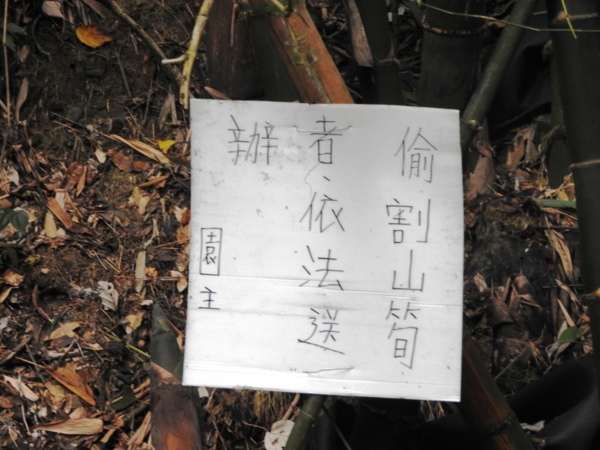 偷割山筍
者、依法送
辦
園主